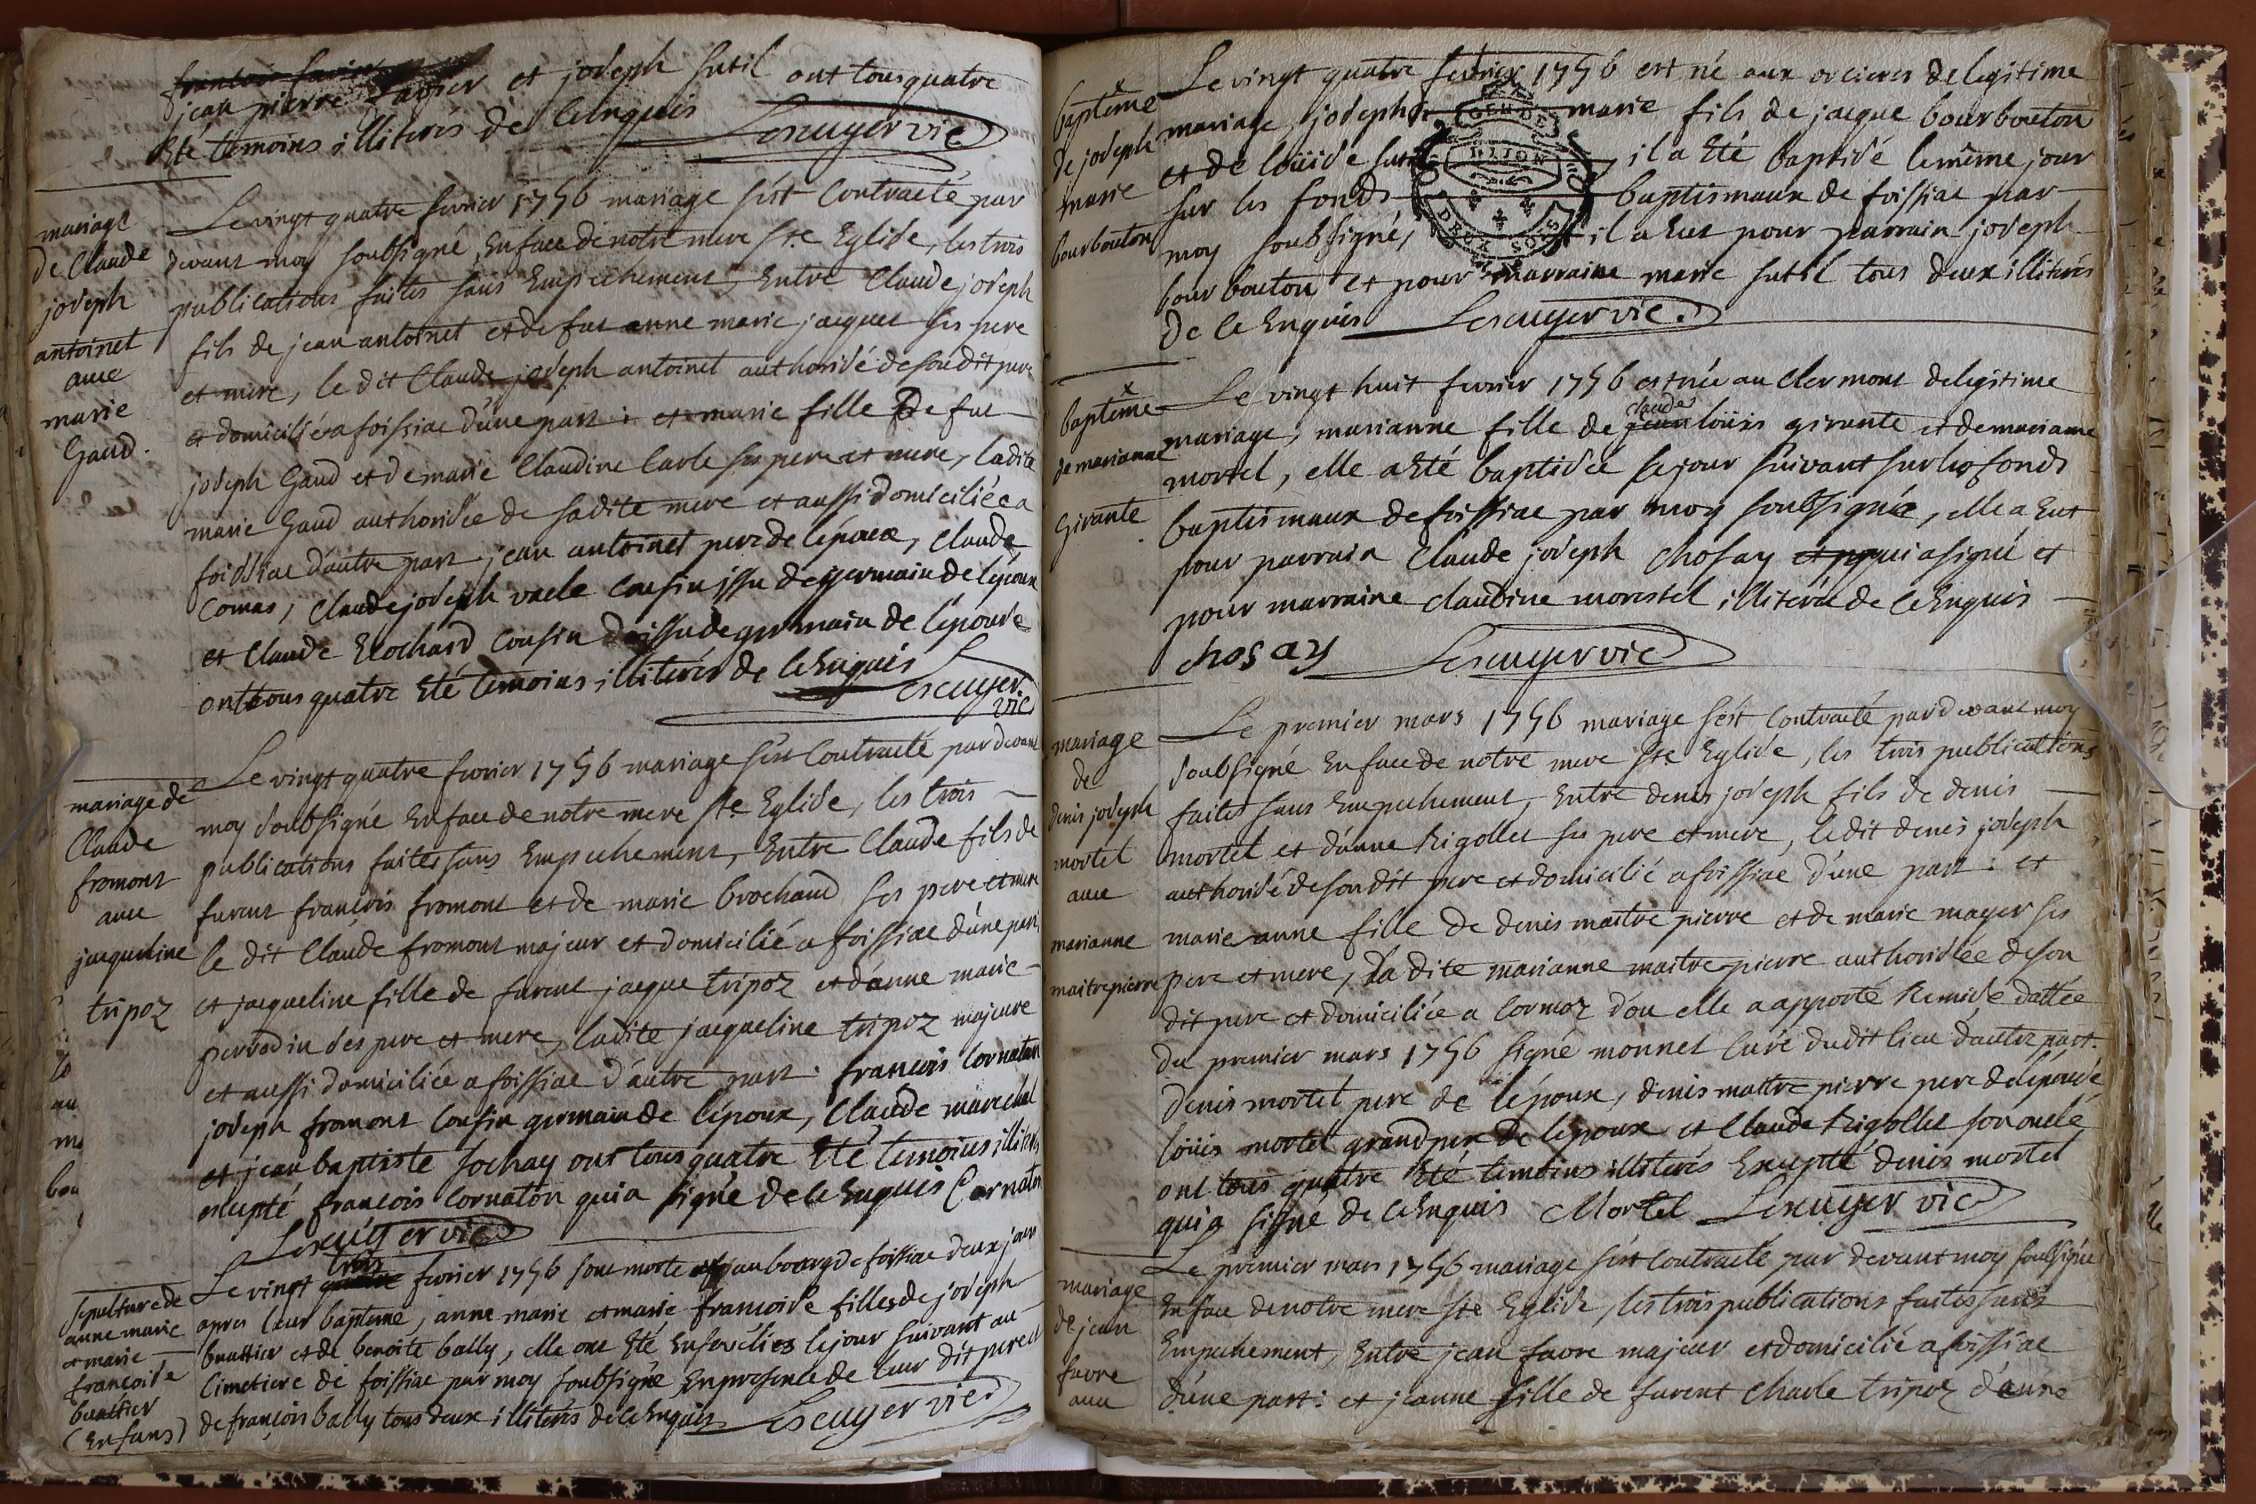 jean pierre favier et joseph sutil ont tous quatre
Eté temoins illiterés de ce Enquis Lescuyer vic
mariage
de Claude
joseph
antoinet
avec
marie
Gaud.
Le vingt quatre fevrier 1756 mariage s'est Contracté par
devant moy soubsigné En face de notre mere Ste Eglise, les trois
publications faites sans Empechement, Entre Claude joseph
fils de jean antoinet et de fut anne marie jacquet ses pere
et mere, le dit Claude joseph antoinet authorisé de son dit pere
et domicilié a foissiac d'une part : et marie fille de fut
joseph Gaud et de marie Claudine Carle ses pere et mere, la dite
marie Gaud authorisée de sa dite mere et aussi domiciliée a
foissiac d'autre part jean antoinet pere de l'époux, Claude
Comas, Claude joseph vacle Cousin issu de germain de l'époux
et Claude Brochard Cousin d'issu de germain de l'épouse
ont tous quatre Eté temoins illiterés de ce Enquis Lescuyer
vic
mariage de
Claude
fromont
avec
jacqueline
tripoz
Le vingt quatre fevrier 1756 mariage s'est Contracté par devant
moy soubsigné En face de notre mere Ste Eglise, les trois
publications faites sans Empechement, Entre Claude fils de
furent françois fromont et de marie brochaud ses pere et mere
le dit Claude fromont majeur et domicilié a foissiac d'une part
et jacqueline fille de furent jacque tripoz et d'anne marie
perrodin ses pere et mere, la dite jacqueline tripoz majeure
et aussi domiciliée a foissiac d'autre part. francois Cornaton
joseph fromont Cousin germain de l'époux, Claude marechal
et jean baptiste sochay ont tous quatre Eté temoins illiterés
excepté francois Cornaton qui a signé de ce Enquis Cornaton
Lescuyer vic
sepulture de
anne marie
et marie
francoise
buattier
(Enfans)
Le vingt trois fevrier 1756 sont mortes au bourg de foissiac deux jours
apres leur bapteme, anne marie et marie francoise filles de joseph
buattier et de benoite bally, elle ont Eté Ensevélies le jour suivant au
Cimetiere de foissiac par moy soubsigné En presence de leur dit pere et
de françois bally tous deux illiterés de ce Enquis Lescuyer vic
baptême
de joseph
marie
bourbouton
Le vingt quatre fevrier 1756 est né aux orcieres de legitime
mariage, joseph marie fils de jacque bourbouton
et de loüise sutil, il a Eté baptisé le même jour
sur les fonds baptismaux de foissiac par
moy soubsigné, il a Eut pour parrain joseph
bourbouton et pour marraine marie sutil tous deux illiterés
de ce Enquis Lescuyer vic.
GEN DE
DIJON
DEUX SOLS
baptême
de marianne
Girante
Le vingt huit fevrier 1756 est née au Clermont de legitime
mariage, marianne fille de claude loüis girante et de marianne
mortel, elle a Eté baptisée le jour suivant sur les fonds
baptismaux de foissiac par moy soubsigné, elle a Eut
pour parrain Claude joseph Chosay qui a signé et
pour marraine claudine morestel illiterée de ce Enquis
chosay Lescuyer vic
mariage
de
denis joseph
mortel
avec
marianne
maitrepierre
Le premier mars 1756 mariage s'est Contracté par devant moy
soubsigné En face de notre mere Ste Eglise, les trois publications
faites sans Empechement, Entre denis joseph fils de denis
mortel et d'anne Rigollet ses pere et mere, le dit denis joseph
authorisé de son dit pere et domicilié a foissiac d'une part : et
marie anne fille de denis maitre pierre et de marie mayer ses
pere et mere, la dite marianne maitre pierre authorisée de son
dit pere et domiciliée a Cormoz d'ou elle a apporté Remise dattée
du premier mars 1756 signé monnet Curé du dit lieu d'autre part.
denis mortel pere de l'époux, denis maitre pierre pere de l'épouse
loüis mortel grand pere de l'époux et Claude Rigollet son oncle
ont tous quatre Eté temoins illiterés Excepté denis mortel
qui a signé de ce Enquis Mortel Lescuyer vic
mariage
de jean
favre
avec
Le premier mars 1756 mariage s'est Contracté par devant moy soubsigné
En face de notre mere Ste Eglise, les trois publications faites sans
Empechement, Entre jean favre majeur et domicilié a foissiac
d'une part : et jeanne fille de furent Charle tripoz d'anne